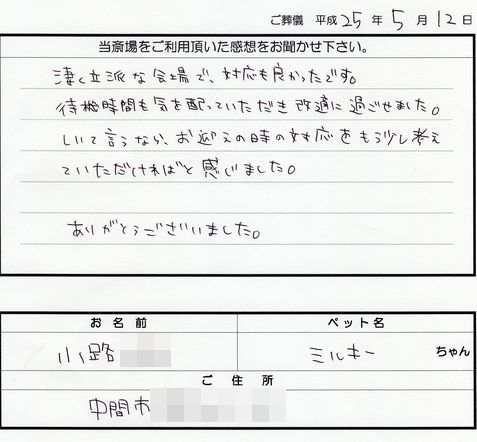 ご葬儀 平成25年5月12日
当斎場をご利用頂いた感想をお聞かせ下さい。
凄く立派な会場で、対応も良かったです。
待機時間も気を配っていただき改適に過ごせました。
しいて言うなら、お迎えの時の対応をもう少し考え
ていただければと感じました。
ありがとうございました。
お名前 ペット名
小路 ミルキー ちゃん
ご住所
中間市